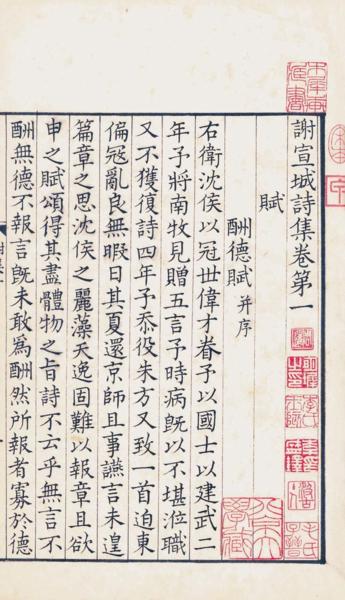 謝宣城詩集卷第一
賦
酬德賦并序
右衛沈侯以冠世偉才眷予以國士以建武二
年予將南牧見贈五言予時病既以不堪涖職
又不獲復詩四年予忝役朱方又致一首迫東
偏冦亂良無暇日其夏還京師且事讌言未遑
篇章之思沈侯之麗藻天逸固難以報章且欲
申之賦頌得其盡體物之旨詩不云乎無言不
酬無德不報言旣未敢為酬然所報者寡於德